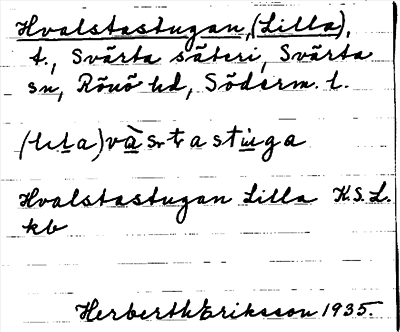 Hvalstastugan, (Lilla),
t., Svärta säteri, Svärta
sn, Rönö hd, Söderm. l.
Hvalstastugan Lilla K.S.L.
kb
Herberth Eriksson 1935.